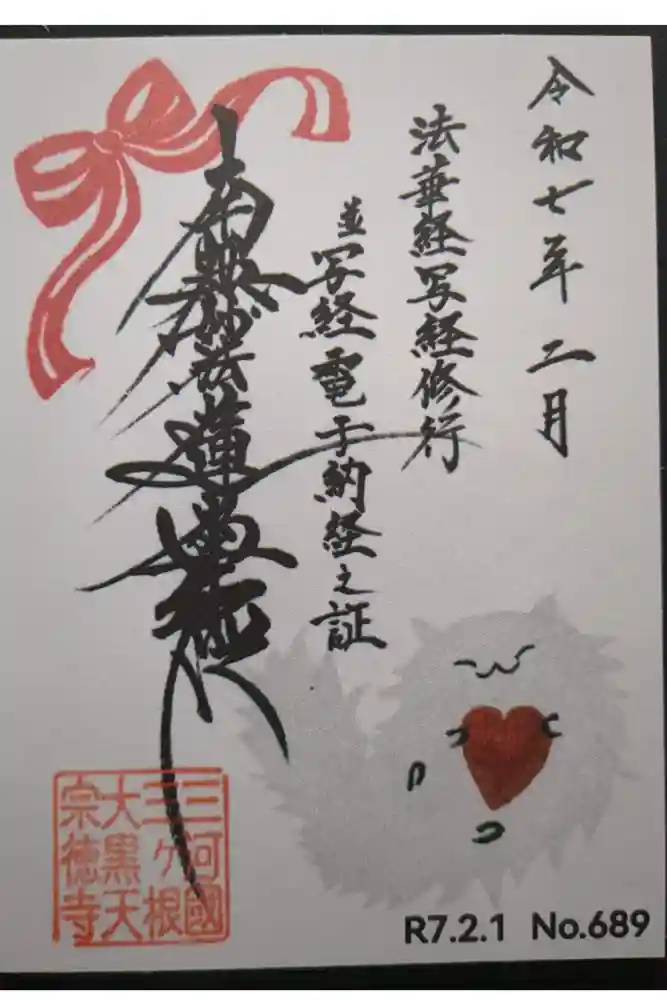 令和七年 二月
法華経写経修行
並写経電子納経之証
南無妙法蓮華経
三河國
三ヶ根
大黒天
宗徳寺
R7.2.1 No.689